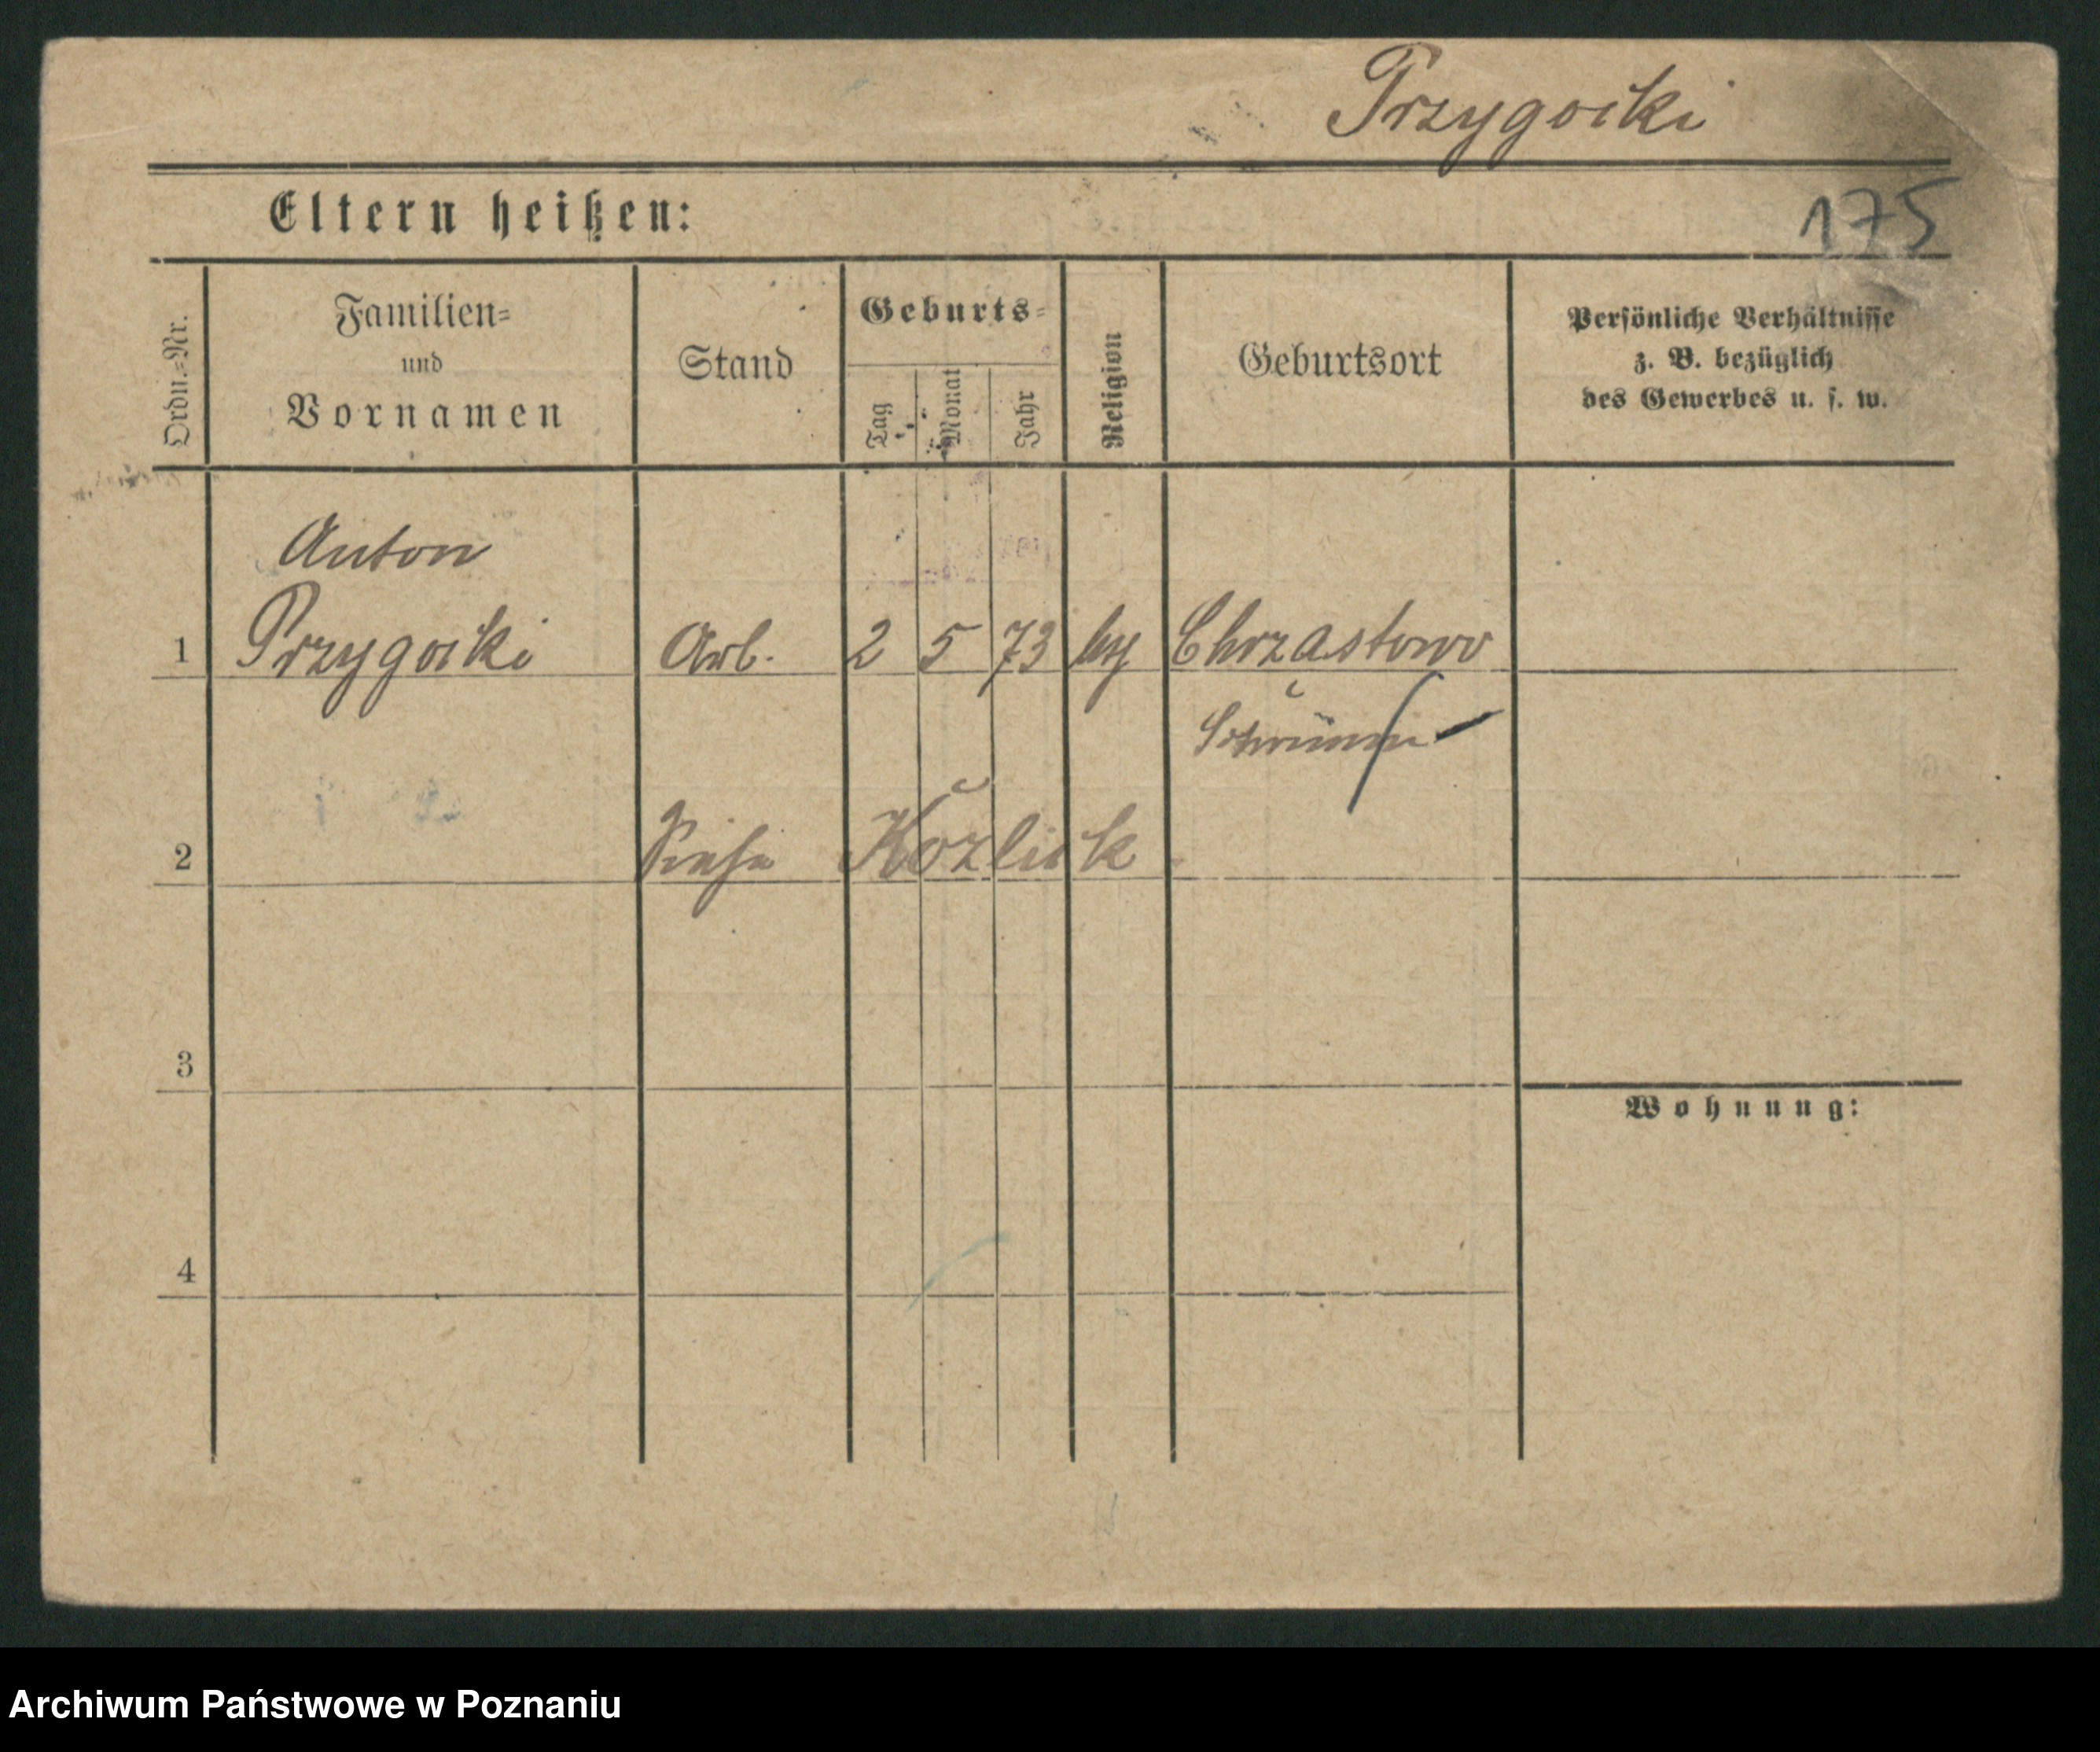 Przygocki
Eltern heißen:
175
Ordn.=Nr.
Familien=
und
Vornamen
Stand
Geburts=
Tag
Monat
Jahr
Religion
Geburtsort
Persönliche Verhältnisse
z. B. bezüglich
des Gewerbes u. s. w.
Anton
1 Przygocki Arb. 2 5 73 Chrzastowo
Schrimm
2 Siehe
3
Wohnung:
4
Archiwum Państwowe w Poznaniu